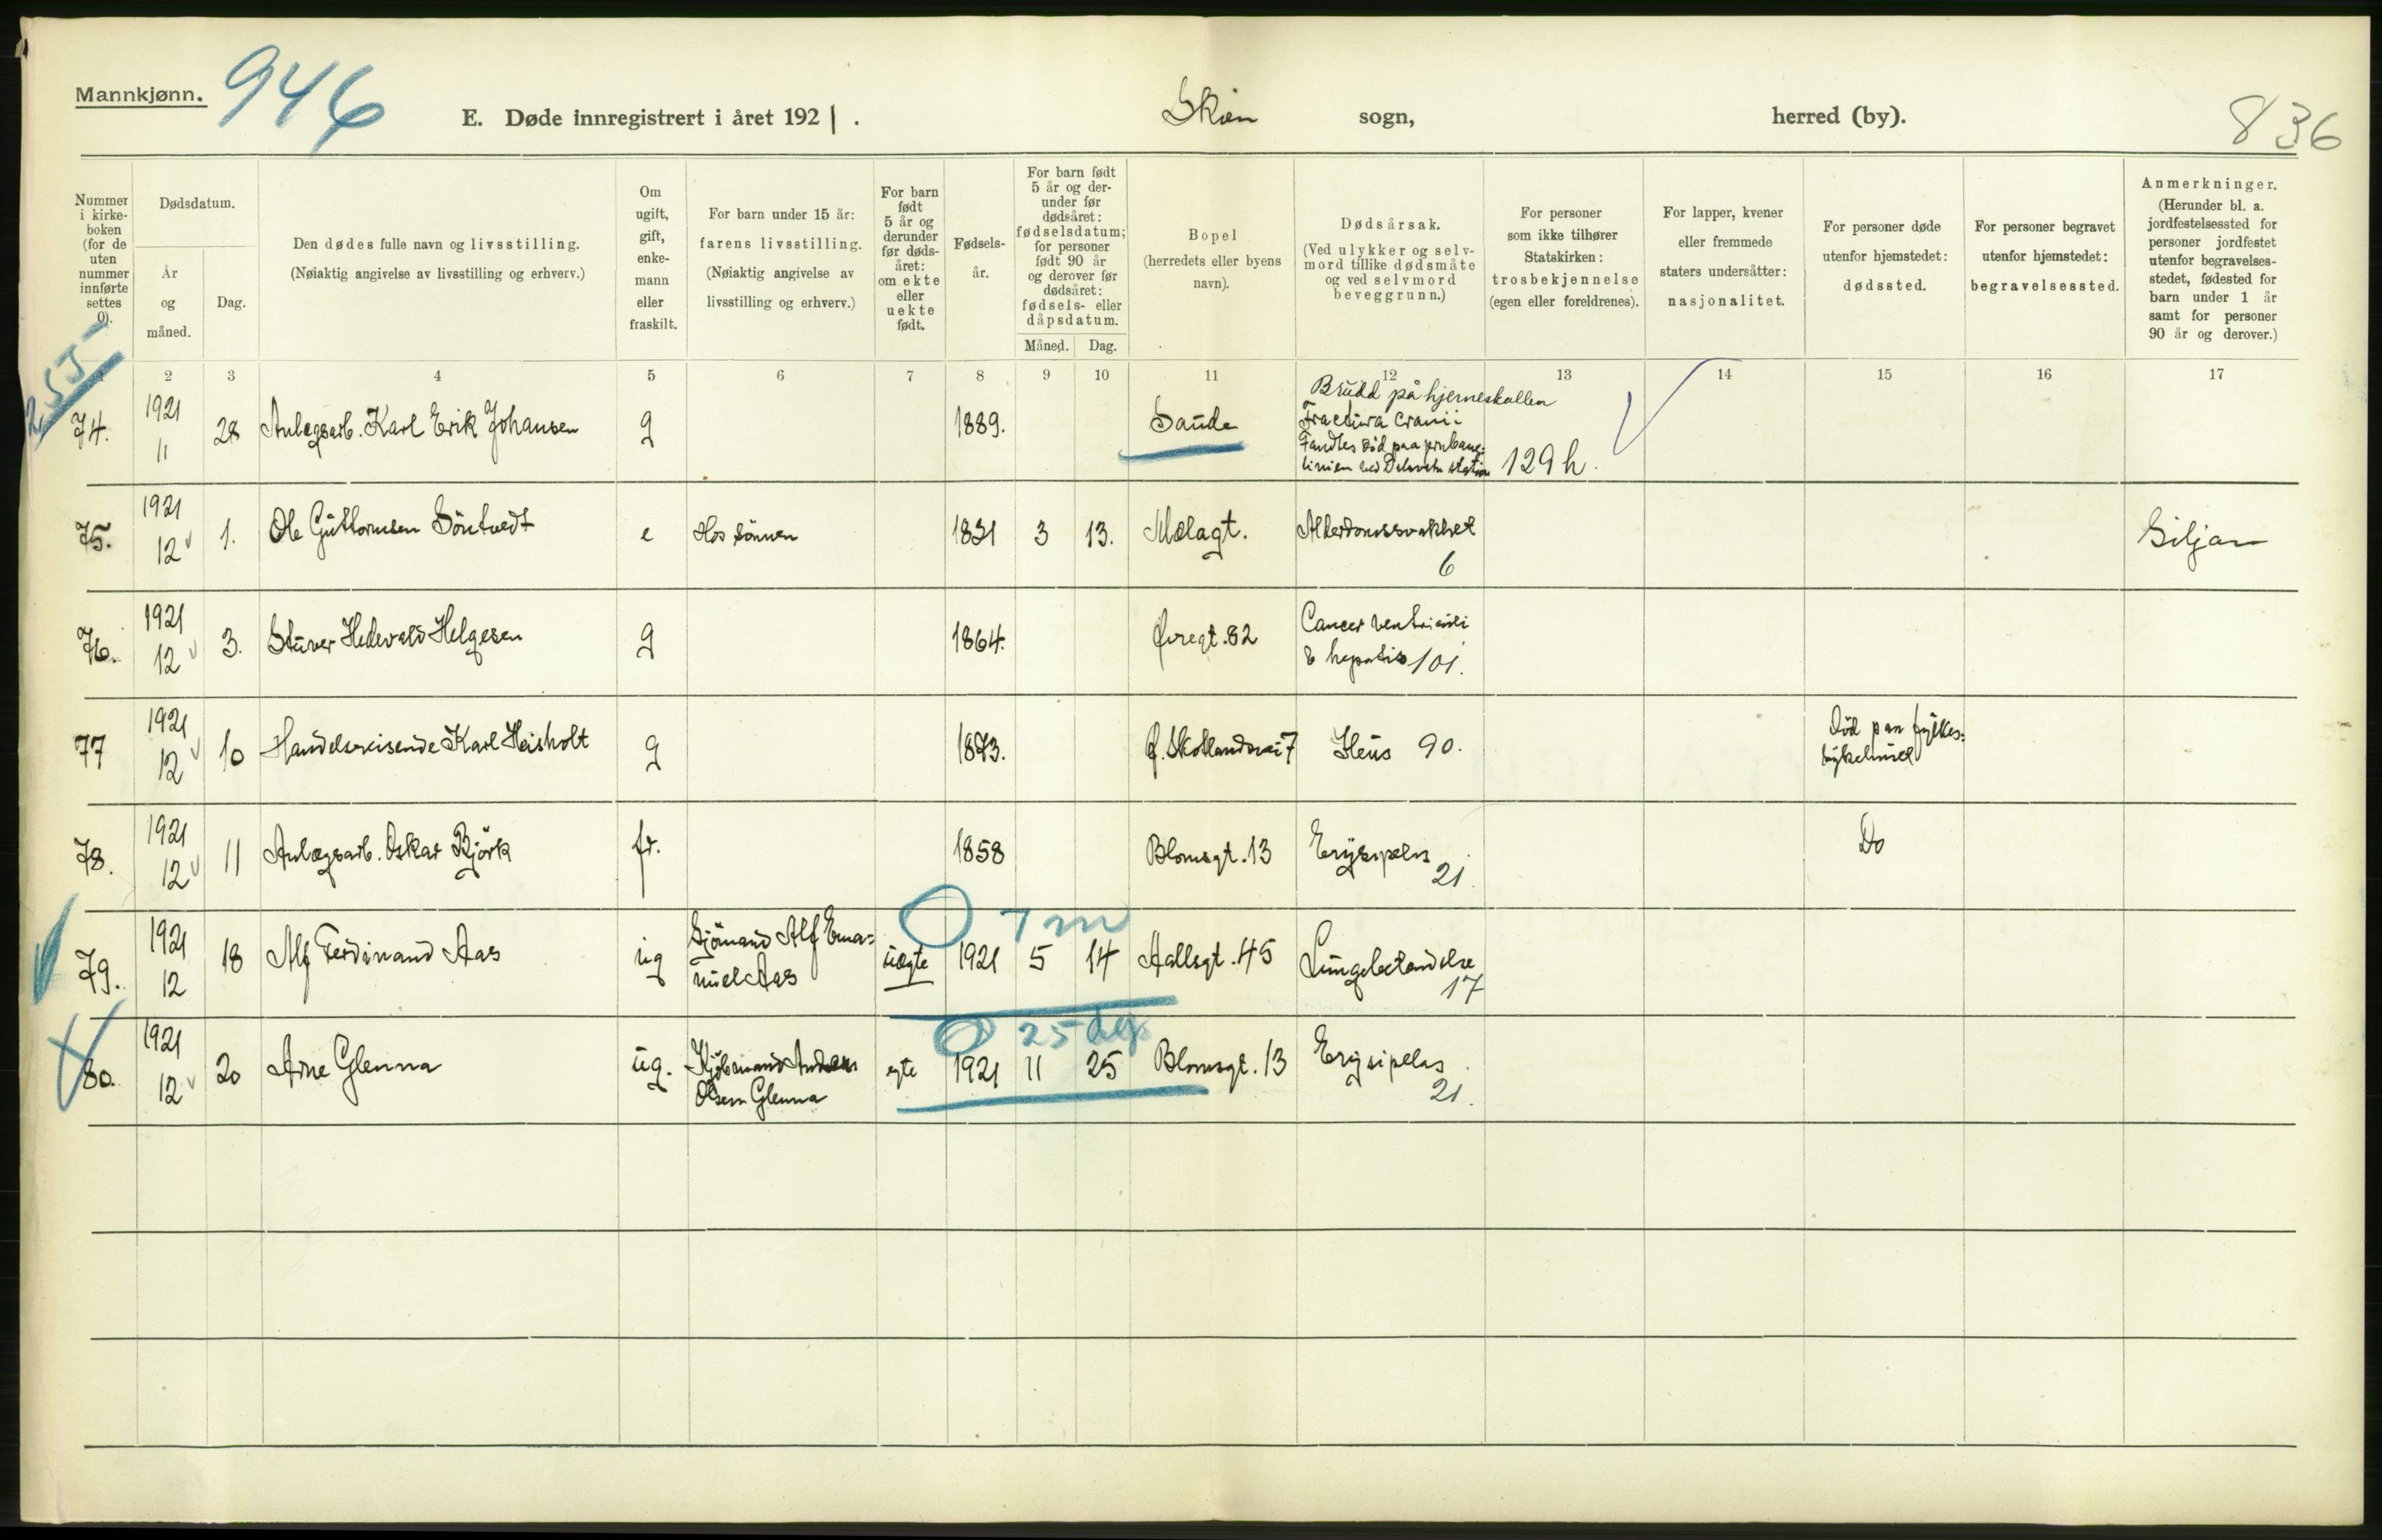 Mannkjønn.
946
E. Døde innregistrert i året 1921.
Skien sogn,
herred (by).
836
Nummer i kirkeboken (for de uten nummer innførte settes 0).
Dødsdatum.
År og måned.
Dag.
Den dødes fulle navn og livsstilling.
(Nøiaktig angivelse av livsstilling og erhverv.)
Om ugift, gift, enkemann eller fraskilt.
For barn under 15 år:
farens livsstilling.
(Nøiaktig angivelse av livsstilling og erhverv.)
For barn født 5 år og derunder før dødsåret: om ekte eller uekte født.
Fødselsår.
For barn født 5 år og derunder før dødsåret: fødselsdatum; for personer født 90 år og derover før dødsåret: fødsels- eller dåpsdatum.
Måned.
Dag.
Bopel
(herredets eller byens navn).
Dødsårsak.
(Ved ulykker og selvmord tillike dødsmåte og ved selvmord beveggrunn.)
For personer som ikke tilhører Statskirken: trosbekjennelse (egen eller foreldrenes).
For lapper, kvener eller fremmede staters undersåtter: nasjonalitet.
For personer døde utenfor hjemstedet: dødssted.
For personer begravet utenfor hjemstedet: begravelsessted.
Anmerkninger.
(Herunder bl. a. jordfestelsessted for personer jordfestet utenfor begravelsesstedet, fødested for barn under 1 år samt for personer 90 år og derover.)
1 2 3 4 5 6 7 8 9 10 11 12 13 14 15 16 17
74. 1921 11 28 Anlegsarb. Karl Erik Johansen g 1889. Saude
Brudd på hjerneskallen
Fractura cranii
Fandtes død paa jernbane-
linien ved station 129 h.
75. 1921 12 1. Ole Guttormsen Söntvedt e Hos sönnen 1831 3 13. Mælagt. Alderdomssvakhet 6 Siljan
76. 1921 12 3. Stuver Hedevald Helgesen g 1864. Øvregt. 82 Cancer ventriculi
& hepatis 101.
77 1921 12 10 Handelsreisende Karl Heisholt g 1873. Ø. Skotlandsvei 7 Ileus 90. Död paa fylkes-
sykehuset
78. 1921 12 11 Anlægsarb. Oskar Björk fr. 1858 Blomsgt. 13 Erysipelas 21. Do
7 m
79. 1921 12 18 Alf Ferdinand Aas ug Sjömand Alf Ema-
nuel Aas uægte 1921 5 14 Hallsgt. 45 Lungebetændelse 17
25 dg.
80. 1921 12 20 Arne Glenna ug. Kjöbmand Anders
Olsen Glenna egte 1921 11 25 Blomsgt. 13 Erysipelas 21.